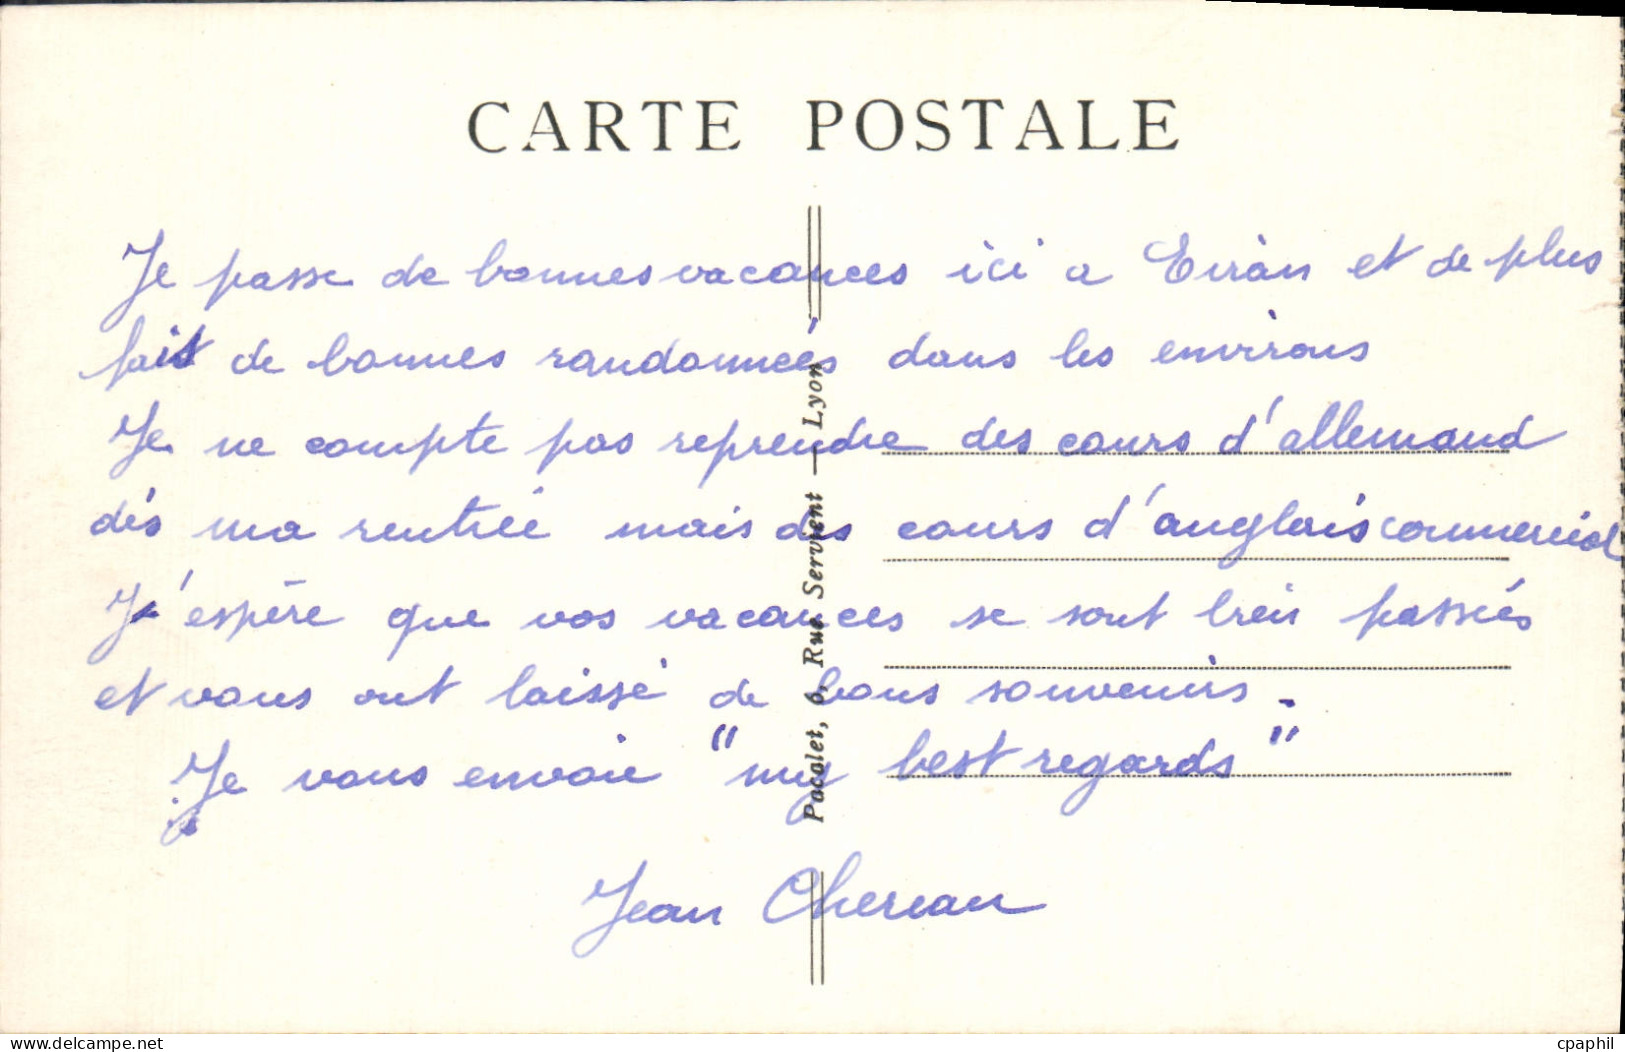 CARTE POSTALE
Je passe de bonnes vacances ici a Eviàn et de plus
fait de bonnes randonnées dans les environs
Je ne compte pas reprendre des cours d'allemand
dés ma rentrée mais des cours d'anglais commercial
J'espère que vos vacances se sont bien passées
et vous ont laissé de bons souvenirs.
Je vous envoie "my best regards"
Jean Chereau
Pacalet, 6, Rue Servient — Lyon
www.delcampe.net
cpaphil